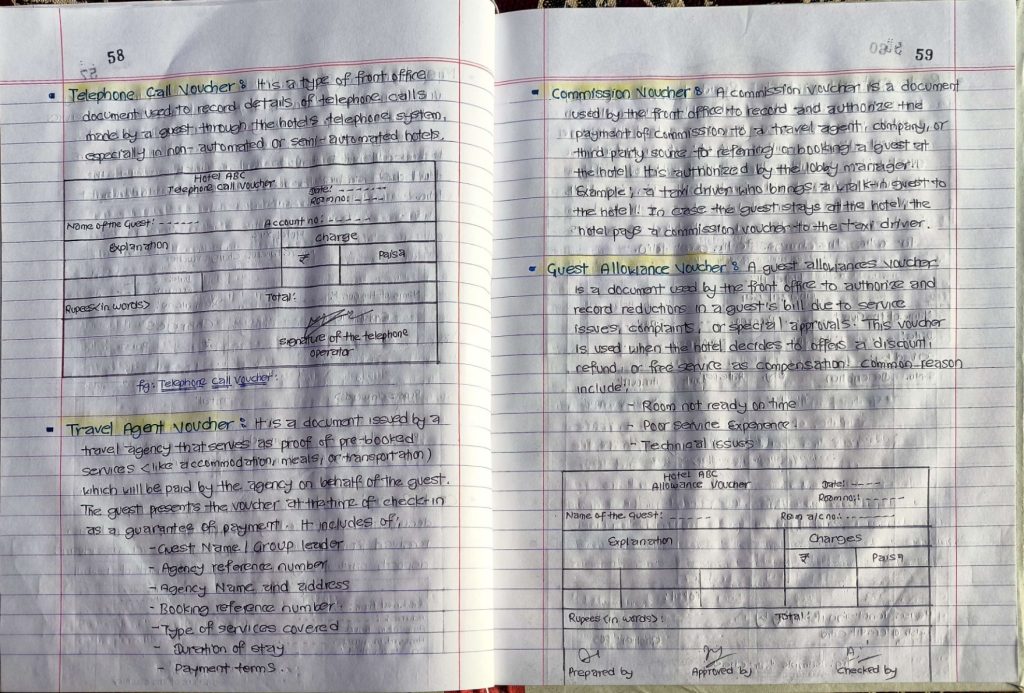 58
Telephone Call Voucher : It is a type of front office
document used to record details of telephone calls
made by a guest through the hotel's telephone system,
especially in non-automated or semi-automated hotels.
Hotel ABC
Telephone call voucher
Date: - - - - - - -
Room no: - - - -
Name of the Guest: - - - - - -
Account no: - - - - -
Explanation
Charge
₹
Paisa
Total:
Rupees (in words)
Signature of the telephone
operator
fg: Telephone call voucher.
Travel Agent Voucher : It is a document issued by a
travel agency that serves as proof of pre-booked
services (like accommodation, meals, or transportation)
which will be paid by the agency on behalf of the guest.
The guest presents the voucher at the time of check-in
as a guarantee of payment. It includes of;
- Guest Name / Group leader
- Agency reference number
- Agency Name and address
- Booking reference number.
- Type of services covered
- Duration of stay
- Payment terms.
59
Commission Voucher : A commission voucher is a document
used by the front office to record and authorize the
payment of commission to a travel agent, company, or
third party source for referring or booking a guest at
the hotel. It is authorized by the lobby manager.
Example; a taxi driver who brings a walk-in guest to
the hotel. In case the guest stays at the hotel, the
hotel pays a commission voucher to the taxi driver.
Guest Allowance Voucher : A guest allowances voucher
is a document used by the front office to authorize and
record reductions in a guest's bill due to service
issues, complaints, or special approvals. This voucher
is used when the hotel decides to offers a discount,
refund, or free service as compensation. common reason
include;
- Room not ready on time
- Poor service Experience
- Technical issues
Hotel ABC
Allowance voucher
Date: - - - - -
Room no: - - - - -
Name of the Guest: - - - - -
Room a/c no: - - - - - - -
Explanation
Charges
₹
Paisa
Rupees (in words):
Total:
Prepared by
Approved by
Checked by